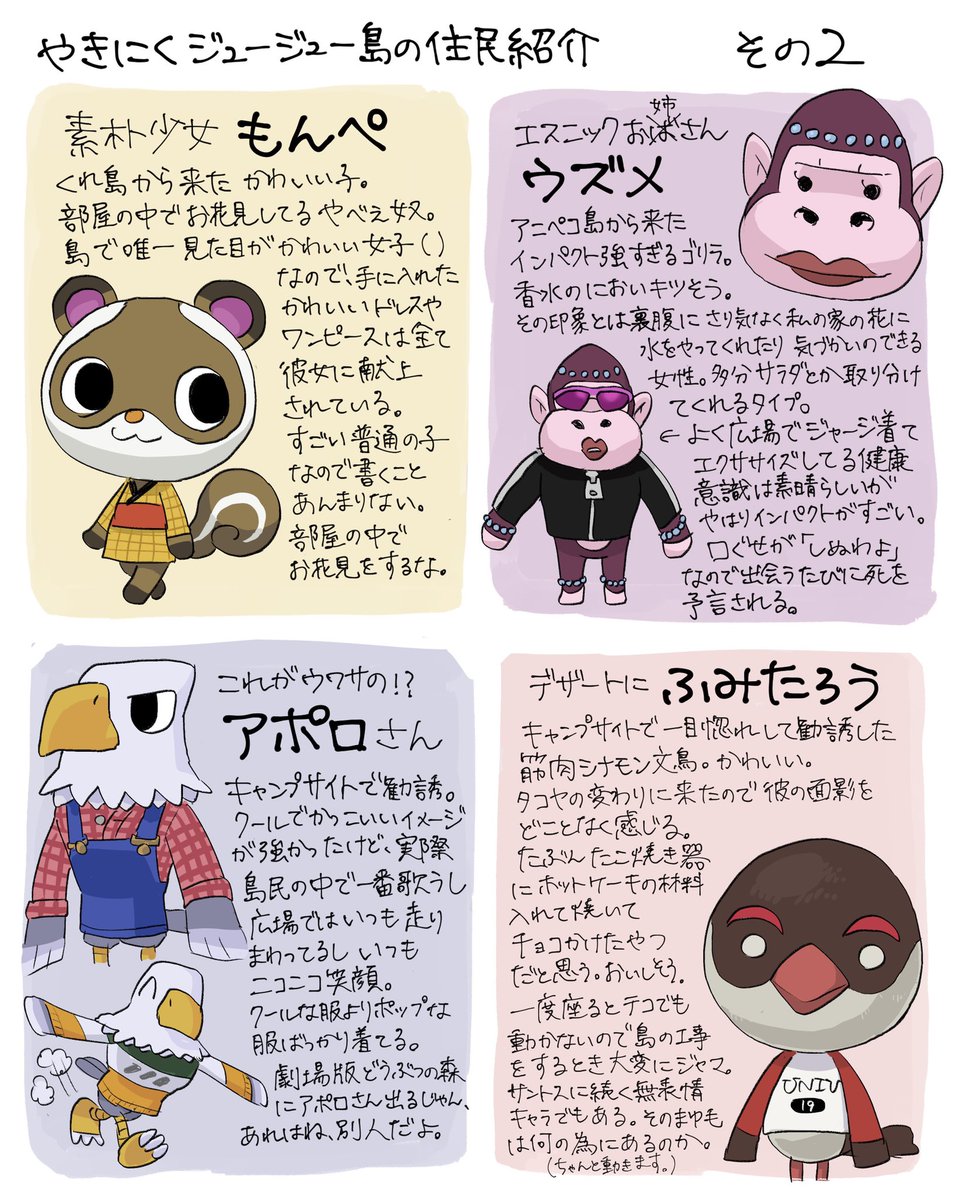 やきにくジュージュー島の住民紹介 その2
素朴少女 もんぺ
くれ島から来た かわいい子。
部屋の中でお花見してるやべえ奴。
島で唯一見た目がかわいい女子()
なので、手に入れた
かわいいドレスや
ワンピースは全て
彼女に献上
されている。
すごい普通の子
なので書くこと
あんまりない。
部屋の中で
お花見をするな。
姉
エスニックおばさん
ウズメ
アニペコ島から来た
インパクト強すぎるゴリラ。
香水のにおいキツそう。
その印象とは裏腹に さり気なく私の家の花に
水をやってくれたり 気づかいのできる
女性。多分サラダとか取り分け
てくれるタイプ。
←よく広場でジャージ着て
エクササイズしてる健康
意識は素晴らしいが
やはりインパクトがすごい。
口ぐせが「しぬわよ」
なので出会うたびに死を
予言される。
これがウワサの!?
アポロさん
キャンプサイトで勧誘。
クールでかっこいいイメージ
が強かったけど、実際
島民の中で一番歌うし
広場ではいつも走り
まわってるし いつも
ニコニコ笑顔。
クールな服よりポップな
服ばっかり着てる。
劇場版どうぶつの森
にアポロさん出るじゃん、
あれはね、別人だよ。
デザートに ふみたろう
キャンプサイトで一目惚れして勧誘した
筋肉シナモン文鳥。かわいい。
タコヤの変わりに来たので彼の面影を
どことなく感じる。
たぶんたこ焼き器
にホットケーキの材料
入れて焼いて
チョコかけたやつ
だと思う。おいしそう。
一度座るとテコでも
動かないので島の工事
をするとき大変にジャマ。
サントスに続く無表情
キャラでもある。そのまゆ毛
は何の為にあるのか。
(ちゃんと動きます。)
UNIV
19